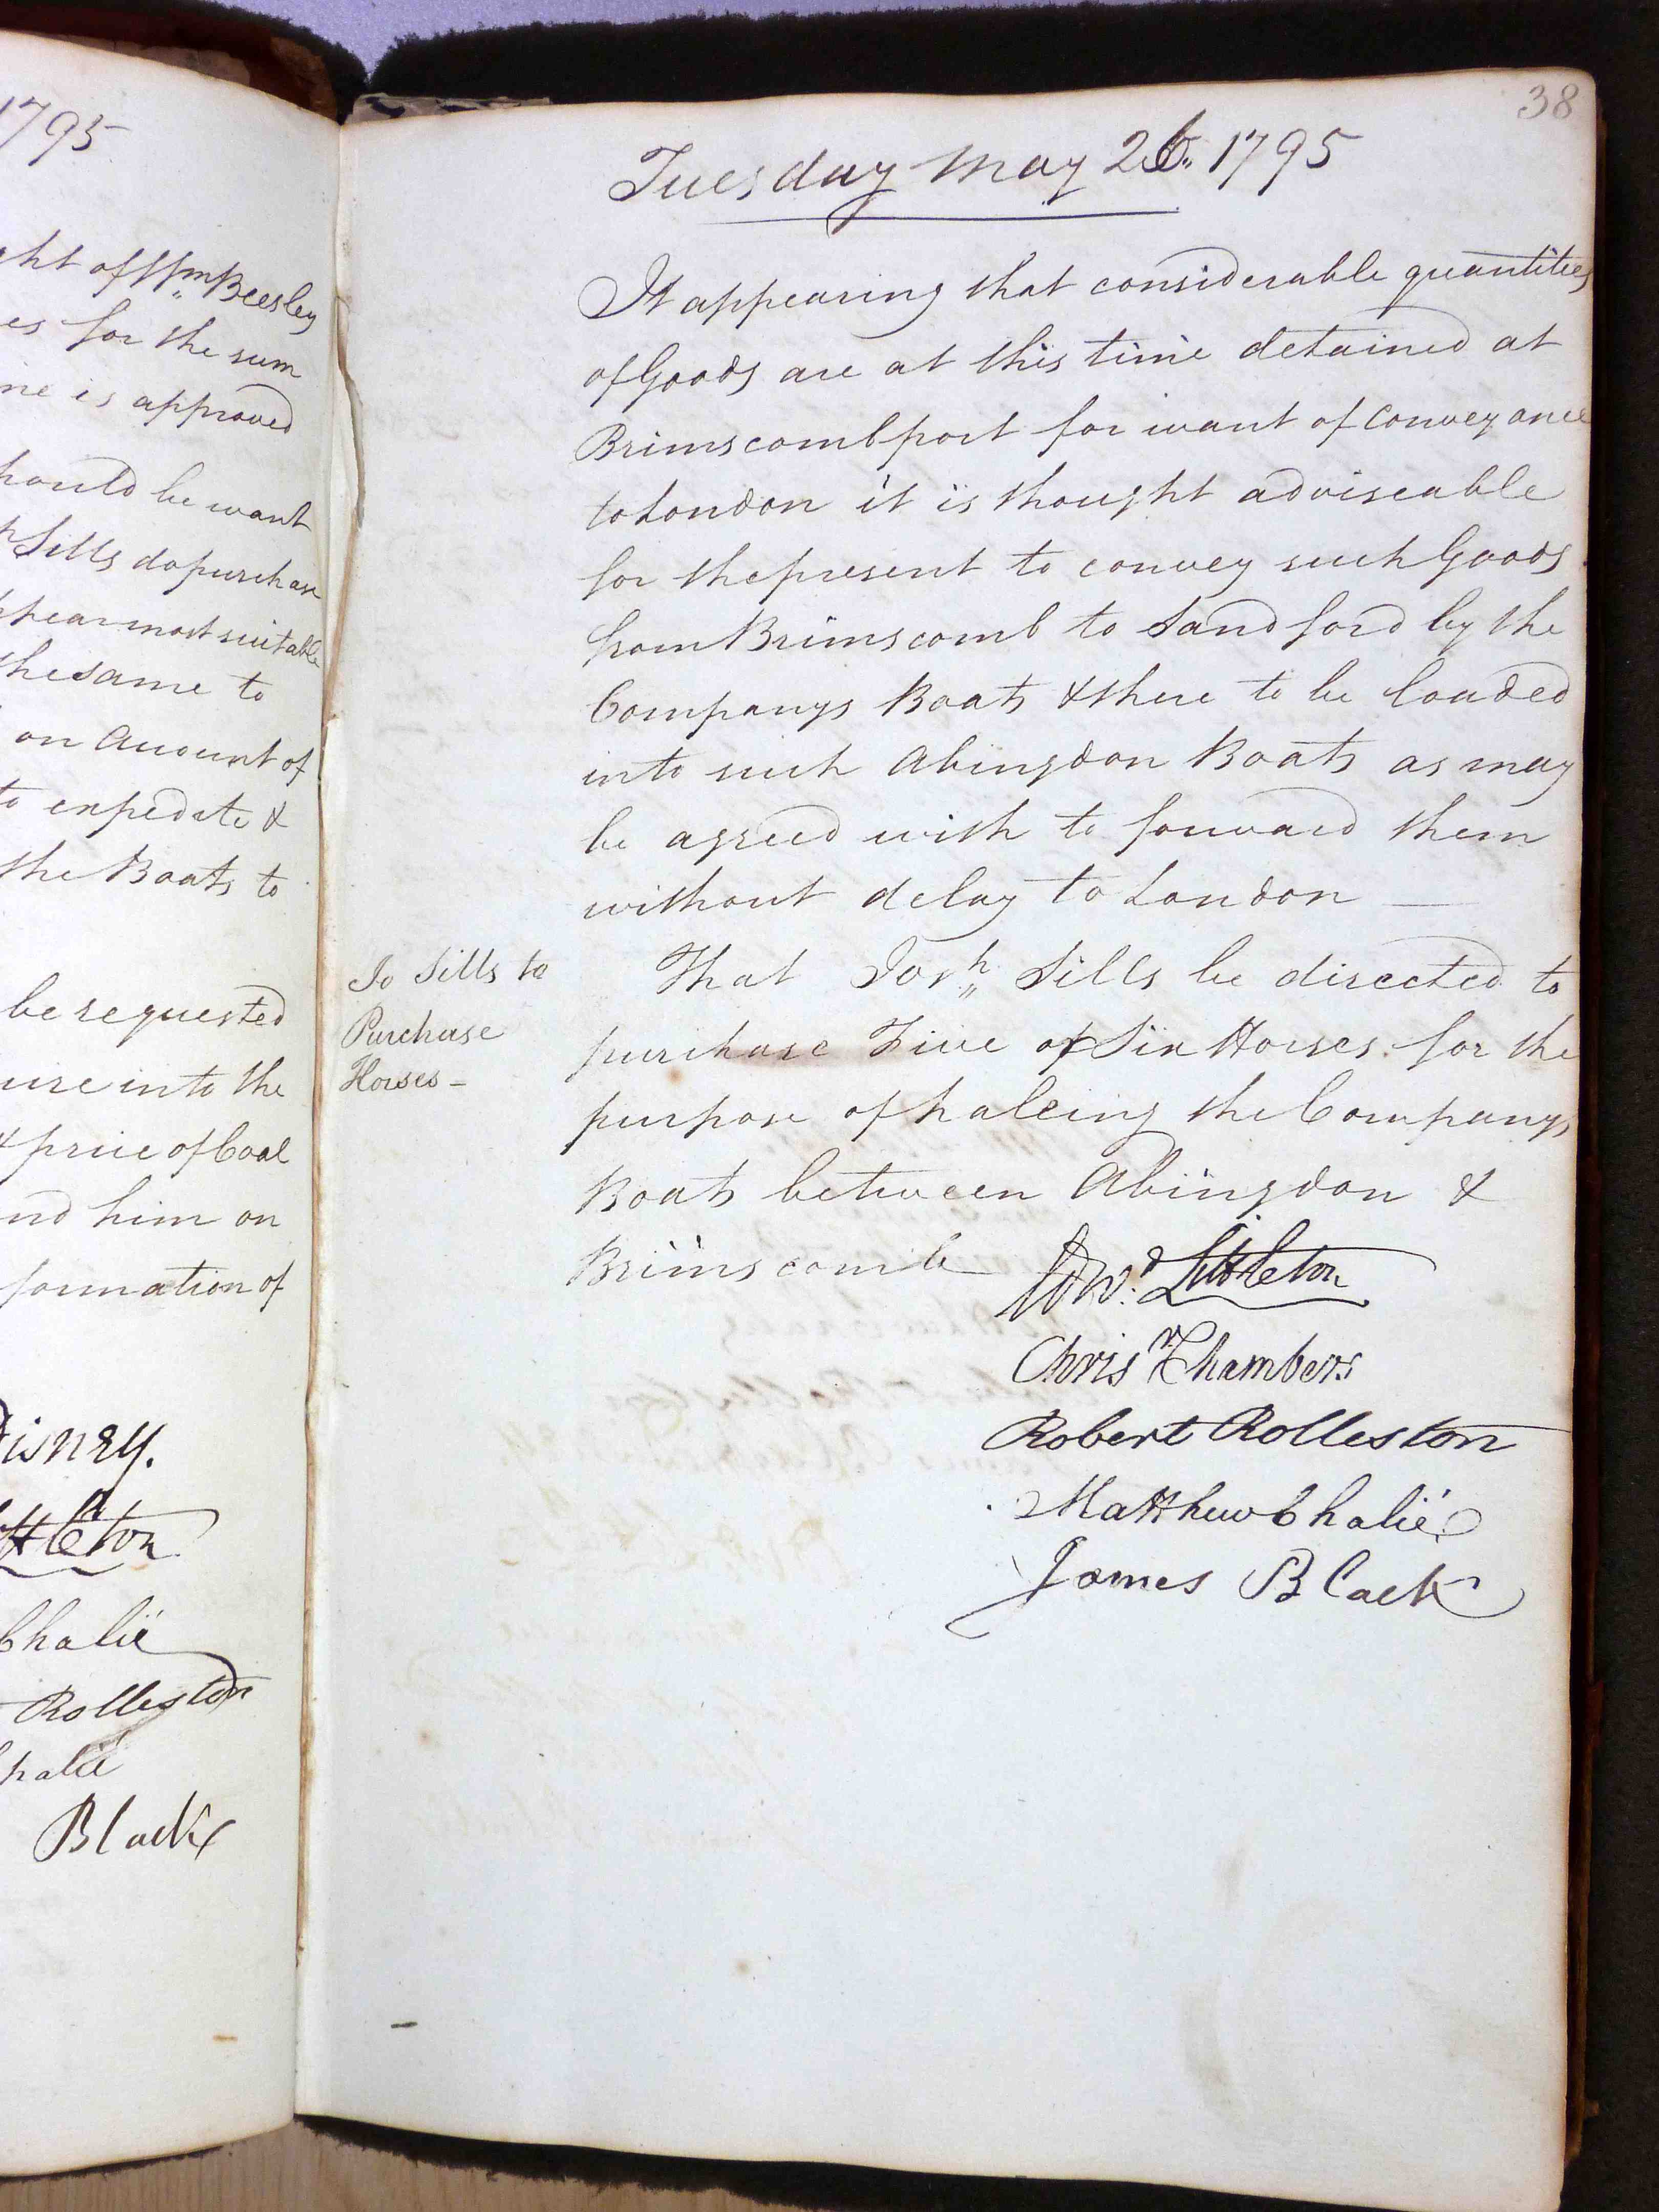 1795
ht of Wm Beesley
es for the sum
me is approved
hould be want
Sills do purchase
ppear most suitable
the same to
on Account of
to expedite &
the Boats to
be requested
uire into the
& price of Coal
nd him on
formation of
isney.
ttleton
Chalié
Rolleston
halié
Black
38
Tuesday May 26. 1795
It appearing that considerable quantities
of Goods are at this time detained at
Brimscomb port for want of Conveyance
to London it is thought adviseable
for the present to convey such Goods
from Brimscomb to Sandford by the
Companys Boats & there to be loaded
into such Abingdon Boats as may
be agreed with to forward them
without delay to London —
Jo Sills to
Purchase
Horses –
That Josh. Sills be directed to
purchase Five or Six Horses for the
purpose of haleing the Companys
Boats between Abingdon &
Brimscomb
Edwd. Littleton
Chrisr. Chambers
Robert Rolleston
Matthew Chalié
James Black